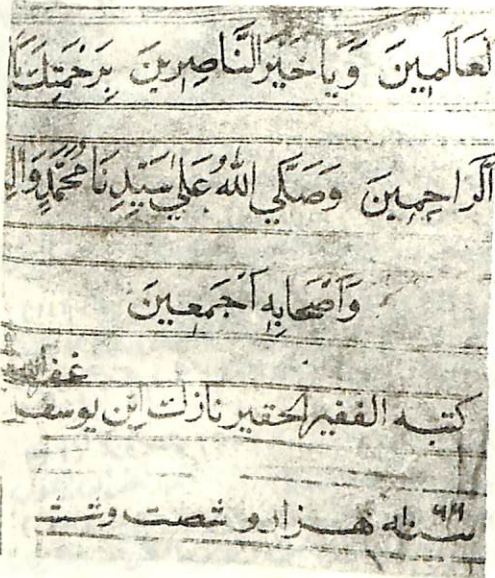 لعَالَمِينَ وَيَا خَيْرَ النَّاصِرِينَ بِرَحْمَتِكَ يَا
اَلرَّاحِمِينَ وَصَلَّي اللّٰهُ عَلٰي سَيِّدِنَا مُحَمَّدٍ وَاٰلِ
وَاَصْحَابِهٖ اَجْمَعِينَ
غفر الله
كتبه الفقير الحقير نازك ابن يوسف
٦٦
سنه هزار و شصت و شش